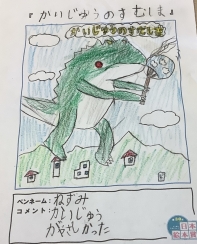 『かいじゅうのすむしま』
かいじゅうのすむしま
ペンネーム：ねずみ
コメント：かいじゅう
がやさしかった